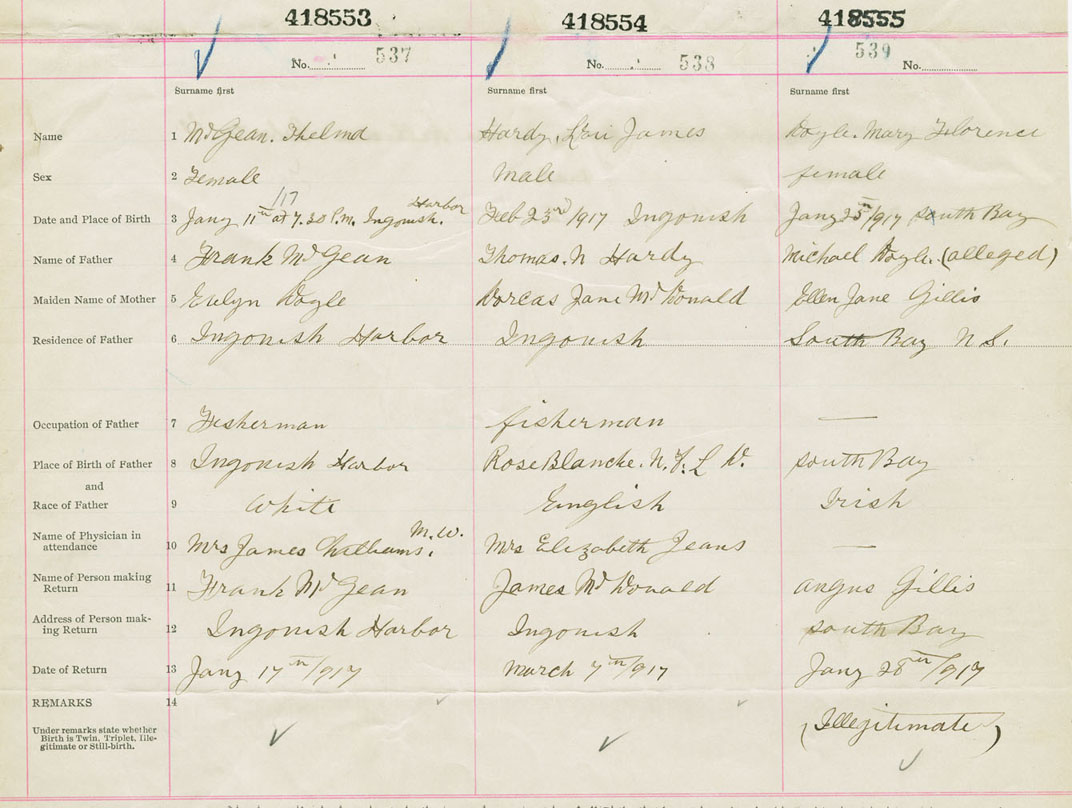 418553 418554 418555
No. 537 No. 538 539 No.
Surname first Surname first Surname first
Name 1 McGean. Thelma Hardy, Levi James Doyle. Mary Florence
Sex 2 Female Male female
/17 Harbor
Date and Place of Birth 3 Jany 11th at 7.30 P.M. Ingonish. Feb 23rd/917 Ingonish Jany 25th/917 South Bay
Name of Father 4 Frank McGean Thomas. N Hardy Michael Doyle. (alleged)
Maiden Name of Mother 5 Evlyn Doyle Dorcas Jane McDonald Ellen Jane Gillis
Residence of Father 6 Ingonish Harbor Ingonish South Bay N S.
Occupation of Father 7 Fisherman fisherman —
Place of Birth of Father 8 Ingonish Harbor Rose Blanche. N. F. L D. South Bay
and
Race of Father 9 White English Irish
Name of Physician in M. W.
attendance 10 Mrs James Williams. Mrs Elizabeth Jeans —
Name of Person making
Return 11 Frank McGean James McDonald Angus Gillis
Address of Person mak-
ing Return 12 Ingonish Harbor Ingonish South Bay
Date of Return 13 Jany 17th/917 March 7th/917 Jany 28th/917
REMARKS 14
Under remarks state whether (Illegitimate)
Birth is Twin, Triplet, Ille-
gitimate or Still-birth.